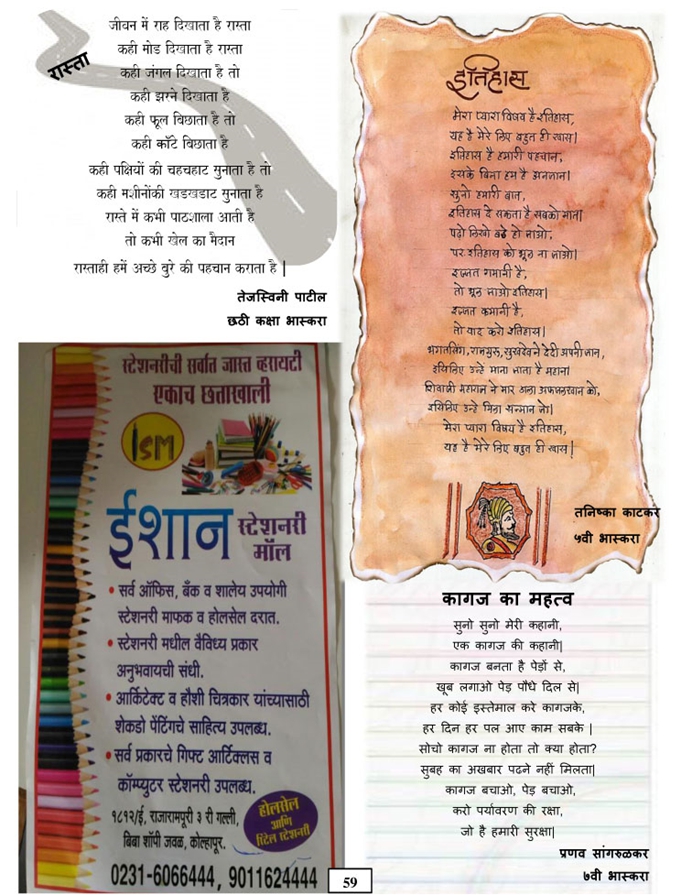 रास्ता
जीवन में राह दिखाता है रास्ता
कही मोड दिखाता है रास्ता
कही जंगल दिखाता है तो
कही झरने दिखाता है
कही फूल बिछाता है तो
कही काँटे बिछाता है
कही पक्षियों की चहचहाट सुनाता है तो
कही मशीनोंकी खडखडाट सुनाता है
रास्ते में कभी पाठशाला आती है
तो कभी खेल का मैदान
रास्ताही हमें अच्छे बुरे की पहचान कराता है |
तेजस्विनी पाटील
छठी कक्षा भास्करा
इतिहास
मेरा प्यारा विषय है इतिहास,
यह है मेरे लिए बहुत ही खास|
इतिहास है हमारी पहचान,
इसके बिना हम है अनजान|
सुनो हमारी बात,
इतिहास दे सकता है सबको मात|
पढो लिखो बडे हो जाओ,
पर इतिहास को भूल ना जाओ|
इज्जत गमानी है,
तो भूल जाओ इतिहास|
इज्जत कमानी है,
तो याद करो इतिहास|
भगतसिंग, राजगुरु, सुखदेव ने दे दी अपनी जान,
इसिलिए उन्हे माना जाता है महान|
शिवाजी महाराज ने मार डाला अफजलखान को,
इसिलिए उन्हे मिला सन्मान जो|
मेरा प्यारा विषय है इतिहास,
यह है मेरे लिए बहुत ही खास|
तनिष्का काटकर
५वी भास्करा
स्टेशनरीची सर्वात जास्त व्हरायटी
एकाच छताखाली
ISM
ईशान स्टेशनरी
मॉल
• सर्व ऑफिस, बँक व शालेय उपयोगी
स्टेशनरी माफक व होलसेल दरात.
• स्टेशनरी मधील वैविध्य प्रकार
अनुभवायची संधी.
• आर्किटेक्ट व हौशी चित्रकार यांच्यासाठी
शेकडो पेंटिंगचे साहित्य उपलब्ध.
• सर्व प्रकारचे गिफ्ट आर्टिक्लस व
कॉम्प्युटर स्टेशनरी उपलब्ध.
१८१२/ई, राजारामपुरी ३ री गल्ली,
बिबा शॉपी जवळ, कोल्हापूर.
होलसेल
आणि
रिटेल स्टेशनरी
0231-6066444, 9011624444
कागज का महत्व
सुनो सुनो मेरी कहानी,
एक कागज की कहानी|
कागज बनता है पेड़ों से,
खूब लगाओ पेड़ पौधे दिल से|
हर कोई इस्तेमाल करे कागजके,
हर दिन हर पल आए काम सबके |
सोचो कागज ना होता तो क्या होता?
सुबह का अखबार पढने नहीं मिलता|
कागज बचाओ, पेड़ बचाओ,
करो पर्यावरण की रक्षा,
जो है हमारी सुरक्षा|
प्रणव सांगरुळकर
७वी भास्करा
59